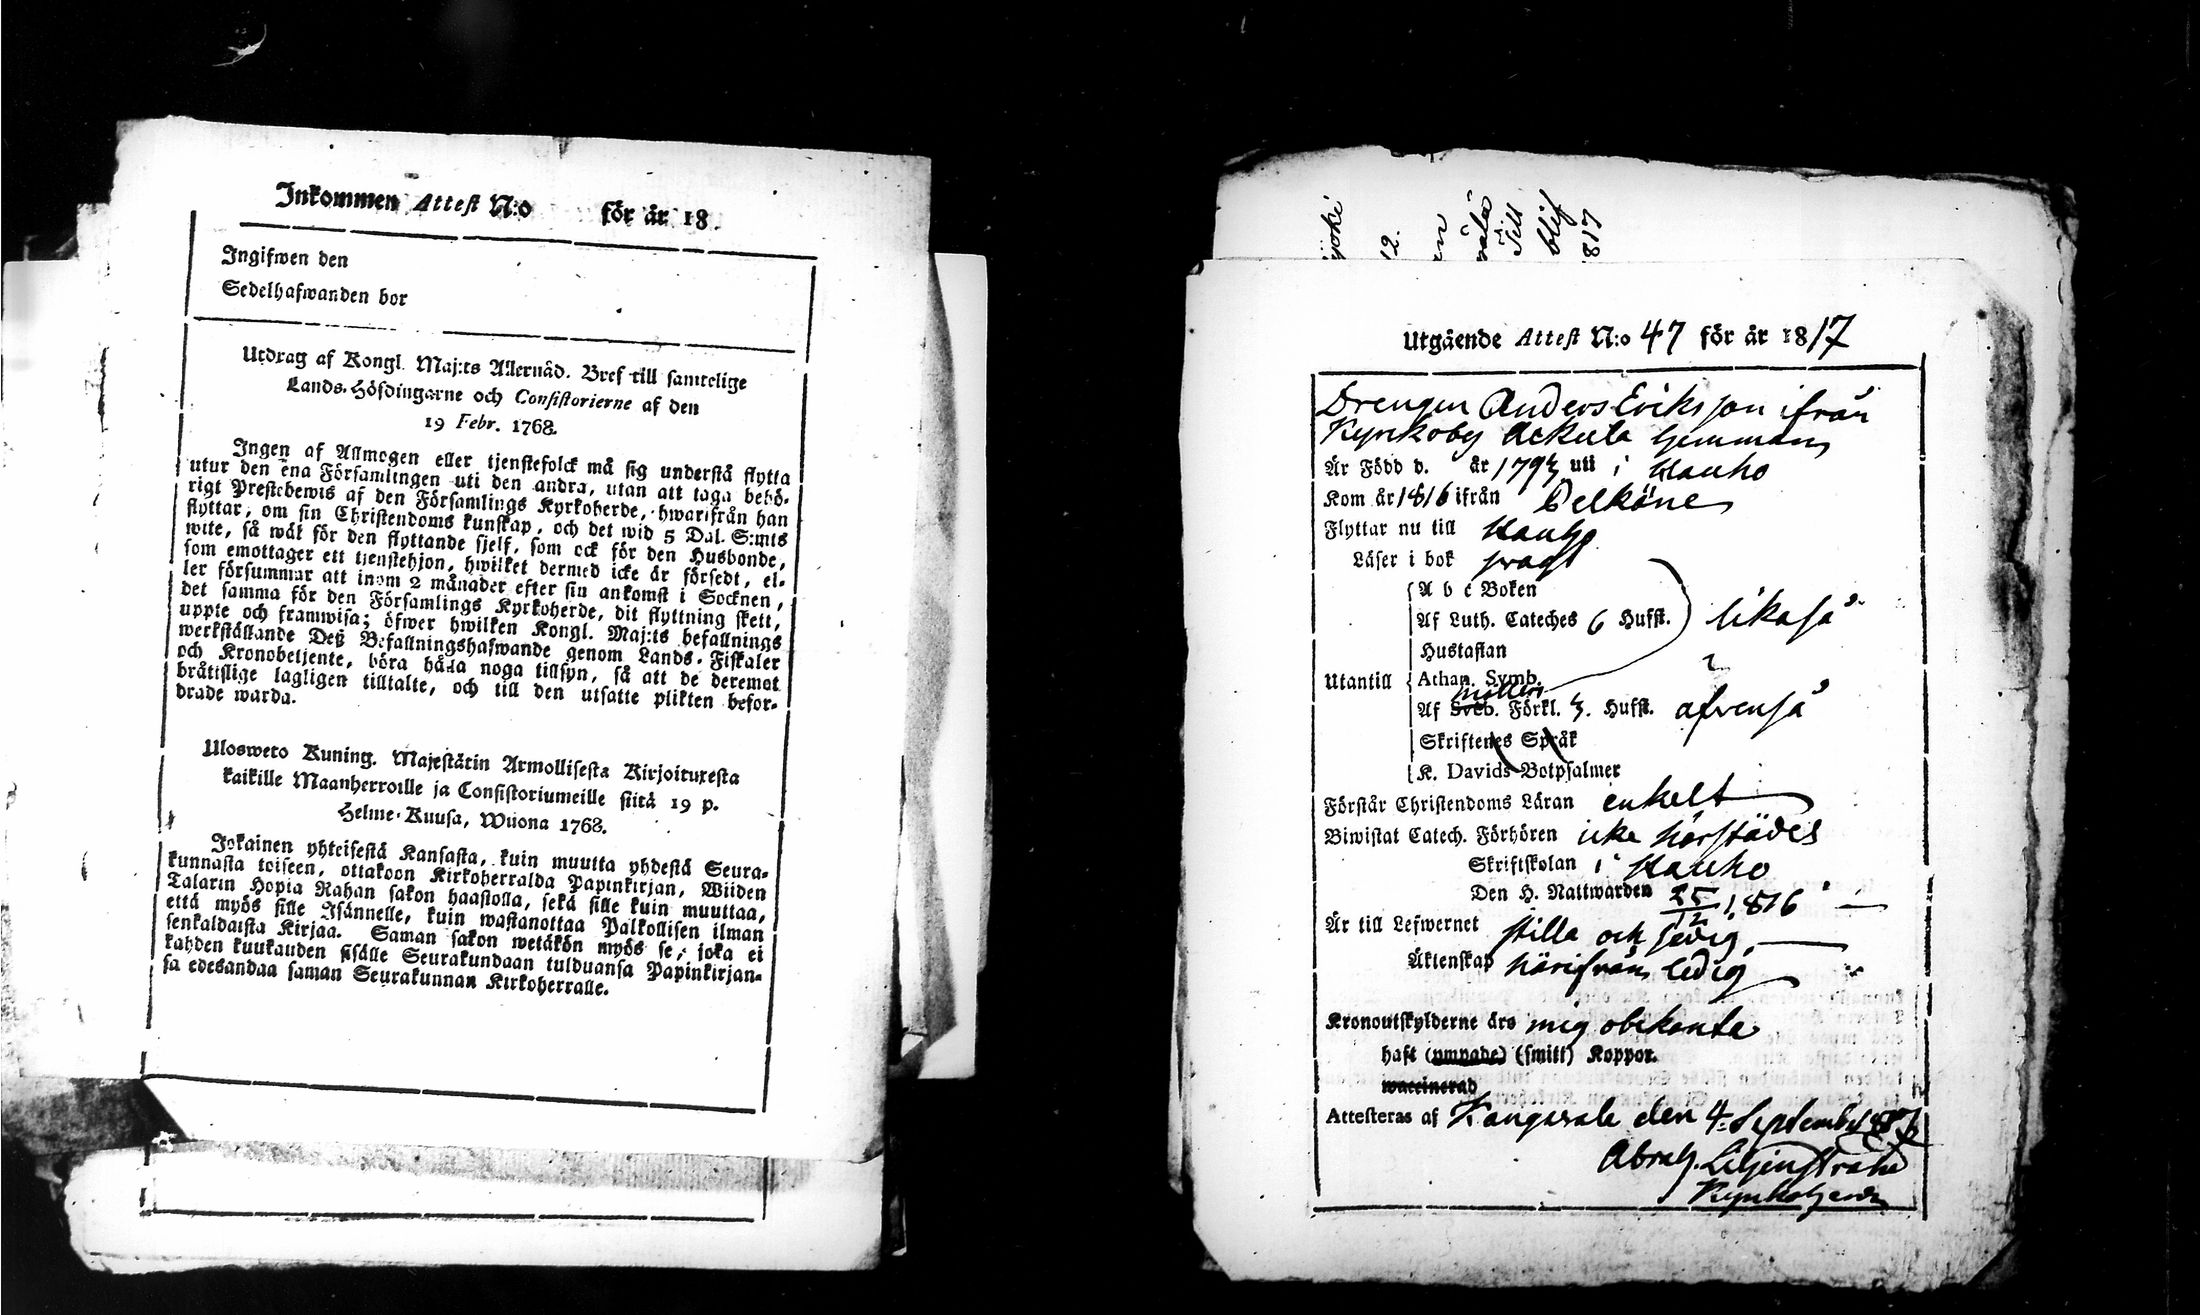 Inkommen Attest N:o för år 18.
Ingifwen den
Sedelhafwanden bor
Utdrag af Kongl. Maj:ts Allernåd. Bref till samtelige
Lands-Höfdingarne och Consistorierne af den
19 Febr. 1768.
Ingen af Allmogen eller tjenstefolck må sig understå flytta
utur den ena Församlingen uti den andra, utan att taga behö-
rigt Prestebewis af den Församlings Kyrkoherde, hwarifrån han
flyttar, om sin Christendoms kunskap, och det wid 5 Dal. S:mts
wite, så wäl för den flyttande sjelf, som ock för den Husbonde,
som emottager ett tjenstehjon, hwilket dermed icke är försedt, el-
ler försummar att inom 2 månader efter sin ankomst i Socknen,
det samma för den Församlings Kyrkoherde, dit flyttning skett,
uppte och framwisa; öfwer hwilken Kongl. Maj:ts befallnings
werkställande Deß Befallningshafwande genom Lands-Fiskaler
och Kronobetjente, böra hålla noga tillsyn, så att de deremot
bråtislige lagligen tilltalte, och till den utsatte plikten befor-
drade warda.
Ulosweto Kuning. Majestätin Armollisesta Kirjoituxesta
kaikille Maanherroille ja Consistoriumeille siitä 19 p.
Helme-Kuusa, Wuona 1768.
Jokainen yhteisestä Kansasta, kuin muutta yhdestä Seura-
kunnasta toiseen, ottakoon Kirkoherralda Papinkirjan, Wiiden
Talarin Hopia Rahan sakon haastolla, sekä sille kuin muuttaa,
että myös sille Isännelle, kuin wastanottaa Palkollisen ilman
senkaldaista Kirjaa. Saman sakon wetäkön myös se, joka ei
kahden kuukauden sisälle Seurakundaan tulduansa Papinkirjan-
sa edesandaa saman Seurakunnan Kirkoherralle.
ijoki
12.
Till
blif
817
Utgående Attest N:o 47 för år 1817
Drengen Anders Eriksson ifrån
Kyrkoby Ackula hemman
Är Född d. år 1793 uti i Hauho
Kom år 1816 ifrån Pelkäne
Flyttar nu till Hauho
Läser i bok svagt
A b c Boken
Af Luth. Cateches 6 Hufst. likaså
Hustaflan
Utantill Athan. Symb.
möllers
Af Sveb. Förkl. 3. Hufst. äfvenså
Skriftenes Språk
K. Davids Botpsalmer
Förstår Christendoms Läran enkelt
Biwistat Catech. Förhören icke härstädes
Skriftskolan i Hauho
Den H. Nattwarden 25/12 1816
Är till Lefwernet stilla och sedig,
Äktenskap härifrån ledig
Kronoutskylderne äro mig obekante
haft (ympade) (smitt) Koppor.
waccinerad
Attesteras af Kangasala den 4. September 1817
Abrah. Liljenstrand
Kyrkoherde